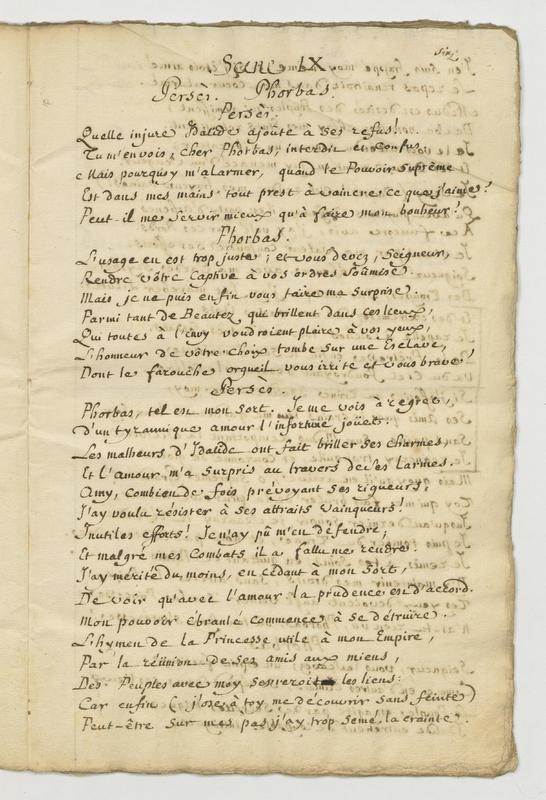 Scene IX
Persès. Phorbas.
Persès.
Quelle injure Idalide ajoûte à ses refus!
Tu m'en vois, cher Phorbas, interdit et confus.
Mais pourquoy m'alarmer, quand le Pouvoir suprême
Est dans mes mains tout prest à vaincre ce que j'aime?
Peut-il me servir mieux qu'à faire mon bonheur?
Phorbas.
L'usage en est trop juste; et vous devez, Seigneur,
Rendre vôtre Captive à vos ordres soûmise.
Mais je ne puis enfin vous taire ma surprise.
Parmi tant de Beautez, qui brillent dans ces lieux,
Qui toutes à l'envy voudroient plaire à vos yeux,
L'honneur de vôtre choix tombe sur une Esclave,
Dont le farouche orgueil vous irrite et vous brave!
Persès.
Phorbas, tel est mon sort. Je me vois à regret,
D'un tyrannique amour l'infortuné jouët.
Les malheurs d'Idalide ont fait briller ses charmes,
Et l'amour m'a surpris au travers de ses larmes.
Amy, combien de fois prévoyant ses rigueurs,
J'ay voulu résister à ses attraits vainqueurs!
Inutiles efforts! Je n'ay pû m'en défendre;
Et malgré mes combats il a fallu me rendre.
J'ay mérité du moins, en cédant à mon sort,
De voir qu'avec l'amour la prudence est d'accord.
Mon pouvoir ébranlé commence à se détruire.
L'hymen de la Princesse, utile à mon Empire,
Par la réünion de ses amis aux miens,
Des Peuples avec moy serreroit les liens:
Car enfin (j'ose à toy me découvrir sans feinte)
Peut-être sur mes pas j'ay trop semé la crainte.